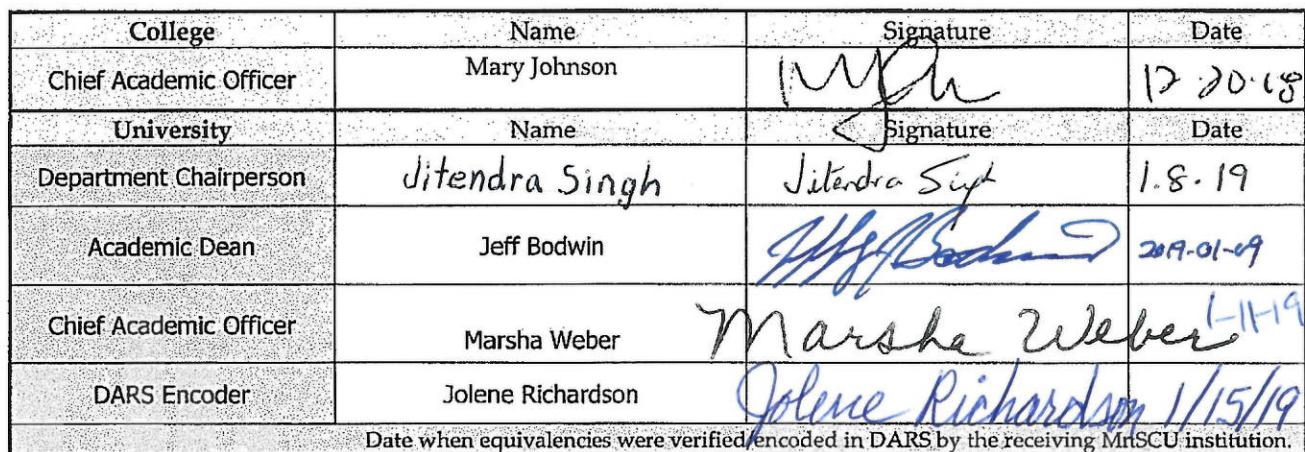 College Name Signature Date
Chief Academic Officer Mary Johnson 12·20·18
University Name Signature Date
Department Chairperson Jitendra Singh Jitendra Singh 1.8.19
Academic Dean Jeff Bodwin 2019-01-09
Chief Academic Officer Marsha Weber Marsha Weber 1-11-19
DARS Encoder Jolene Richardson Jolene Richardson 1/15/19
Date when equivalencies were verified/encoded in DARS by the receiving MnSCU institution.